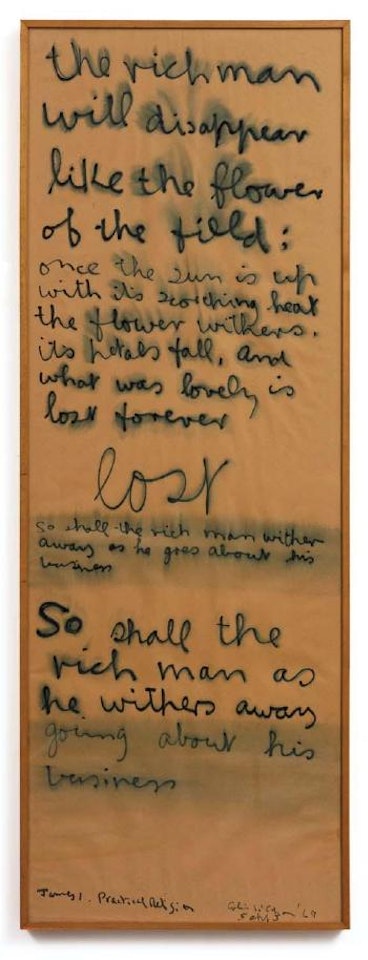 the rich man
will disappear
like the flower
of the field:
once the sun is up
with its scorching heat
the flower withers,
its petals fall, and
what was lovely is
lost forever
lost
so shall the rich man wither
away as he goes about his
business
So shall the
rich man as
he withers away
going about his
business
James 1. Practical Religion
'69